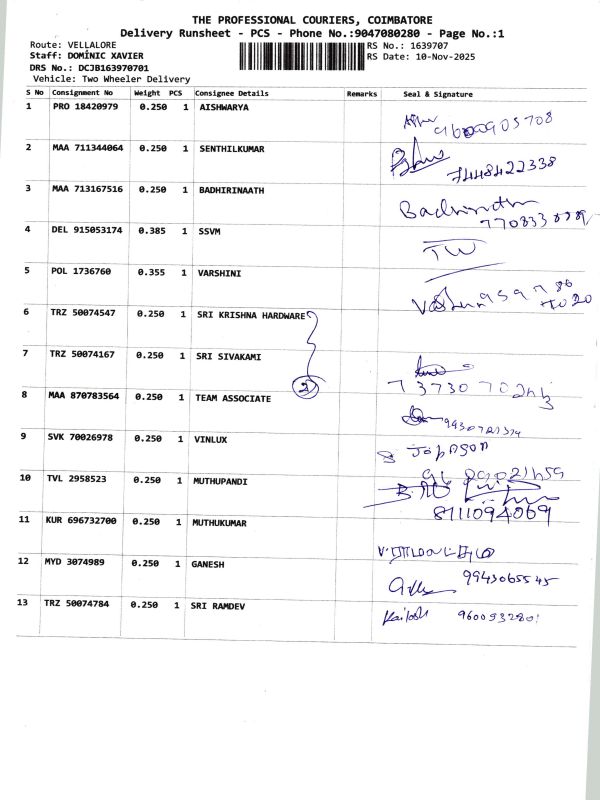 THE PROFESSIONAL COURIERS, COIMBATORE
Delivery Runsheet - PCS - Phone No.:9047080280 - Page No.:1
Route: VELLALORE
Staff: DOMINIC XAVIER
DRS No.: DCJB163970701
Vehicle: Two Wheeler Delivery
RS No.: 1639707
RS Date: 10-Nov-2025
S No Consignment No Weight PCS Consignee Details Remarks Seal & Signature
1 PRO 18420979 0.250 1 AISHWARYA
2 MAA 711344064 0.250 1 SENTHILKUMAR
7448422338
3 MAA 713167516 0.250 1 BADHIRINAATH Badhirinath
4 DEL 915053174 0.385 1 SSVM
5 POL 1736760 0.355 1 VARSHINI
6 TRZ 50074547 0.250 1 SRI KRISHNA HARDWARE
7 TRZ 50074167 0.250 1 SRI SIVAKAMI
2
8 MAA 870783564 0.250 1 TEAM ASSOCIATE
9 SVK 70026978 0.250 1 VINLUX
10 TVL 2958523 0.250 1 MUTHUPANDI
8111094069
11 KUR 696732700 0.250 1 MUTHUKUMAR
12 MYD 3074989 0.250 1 GANESH 9943065545
13 TRZ 50074784 0.250 1 SRI RAMDEV Kailash